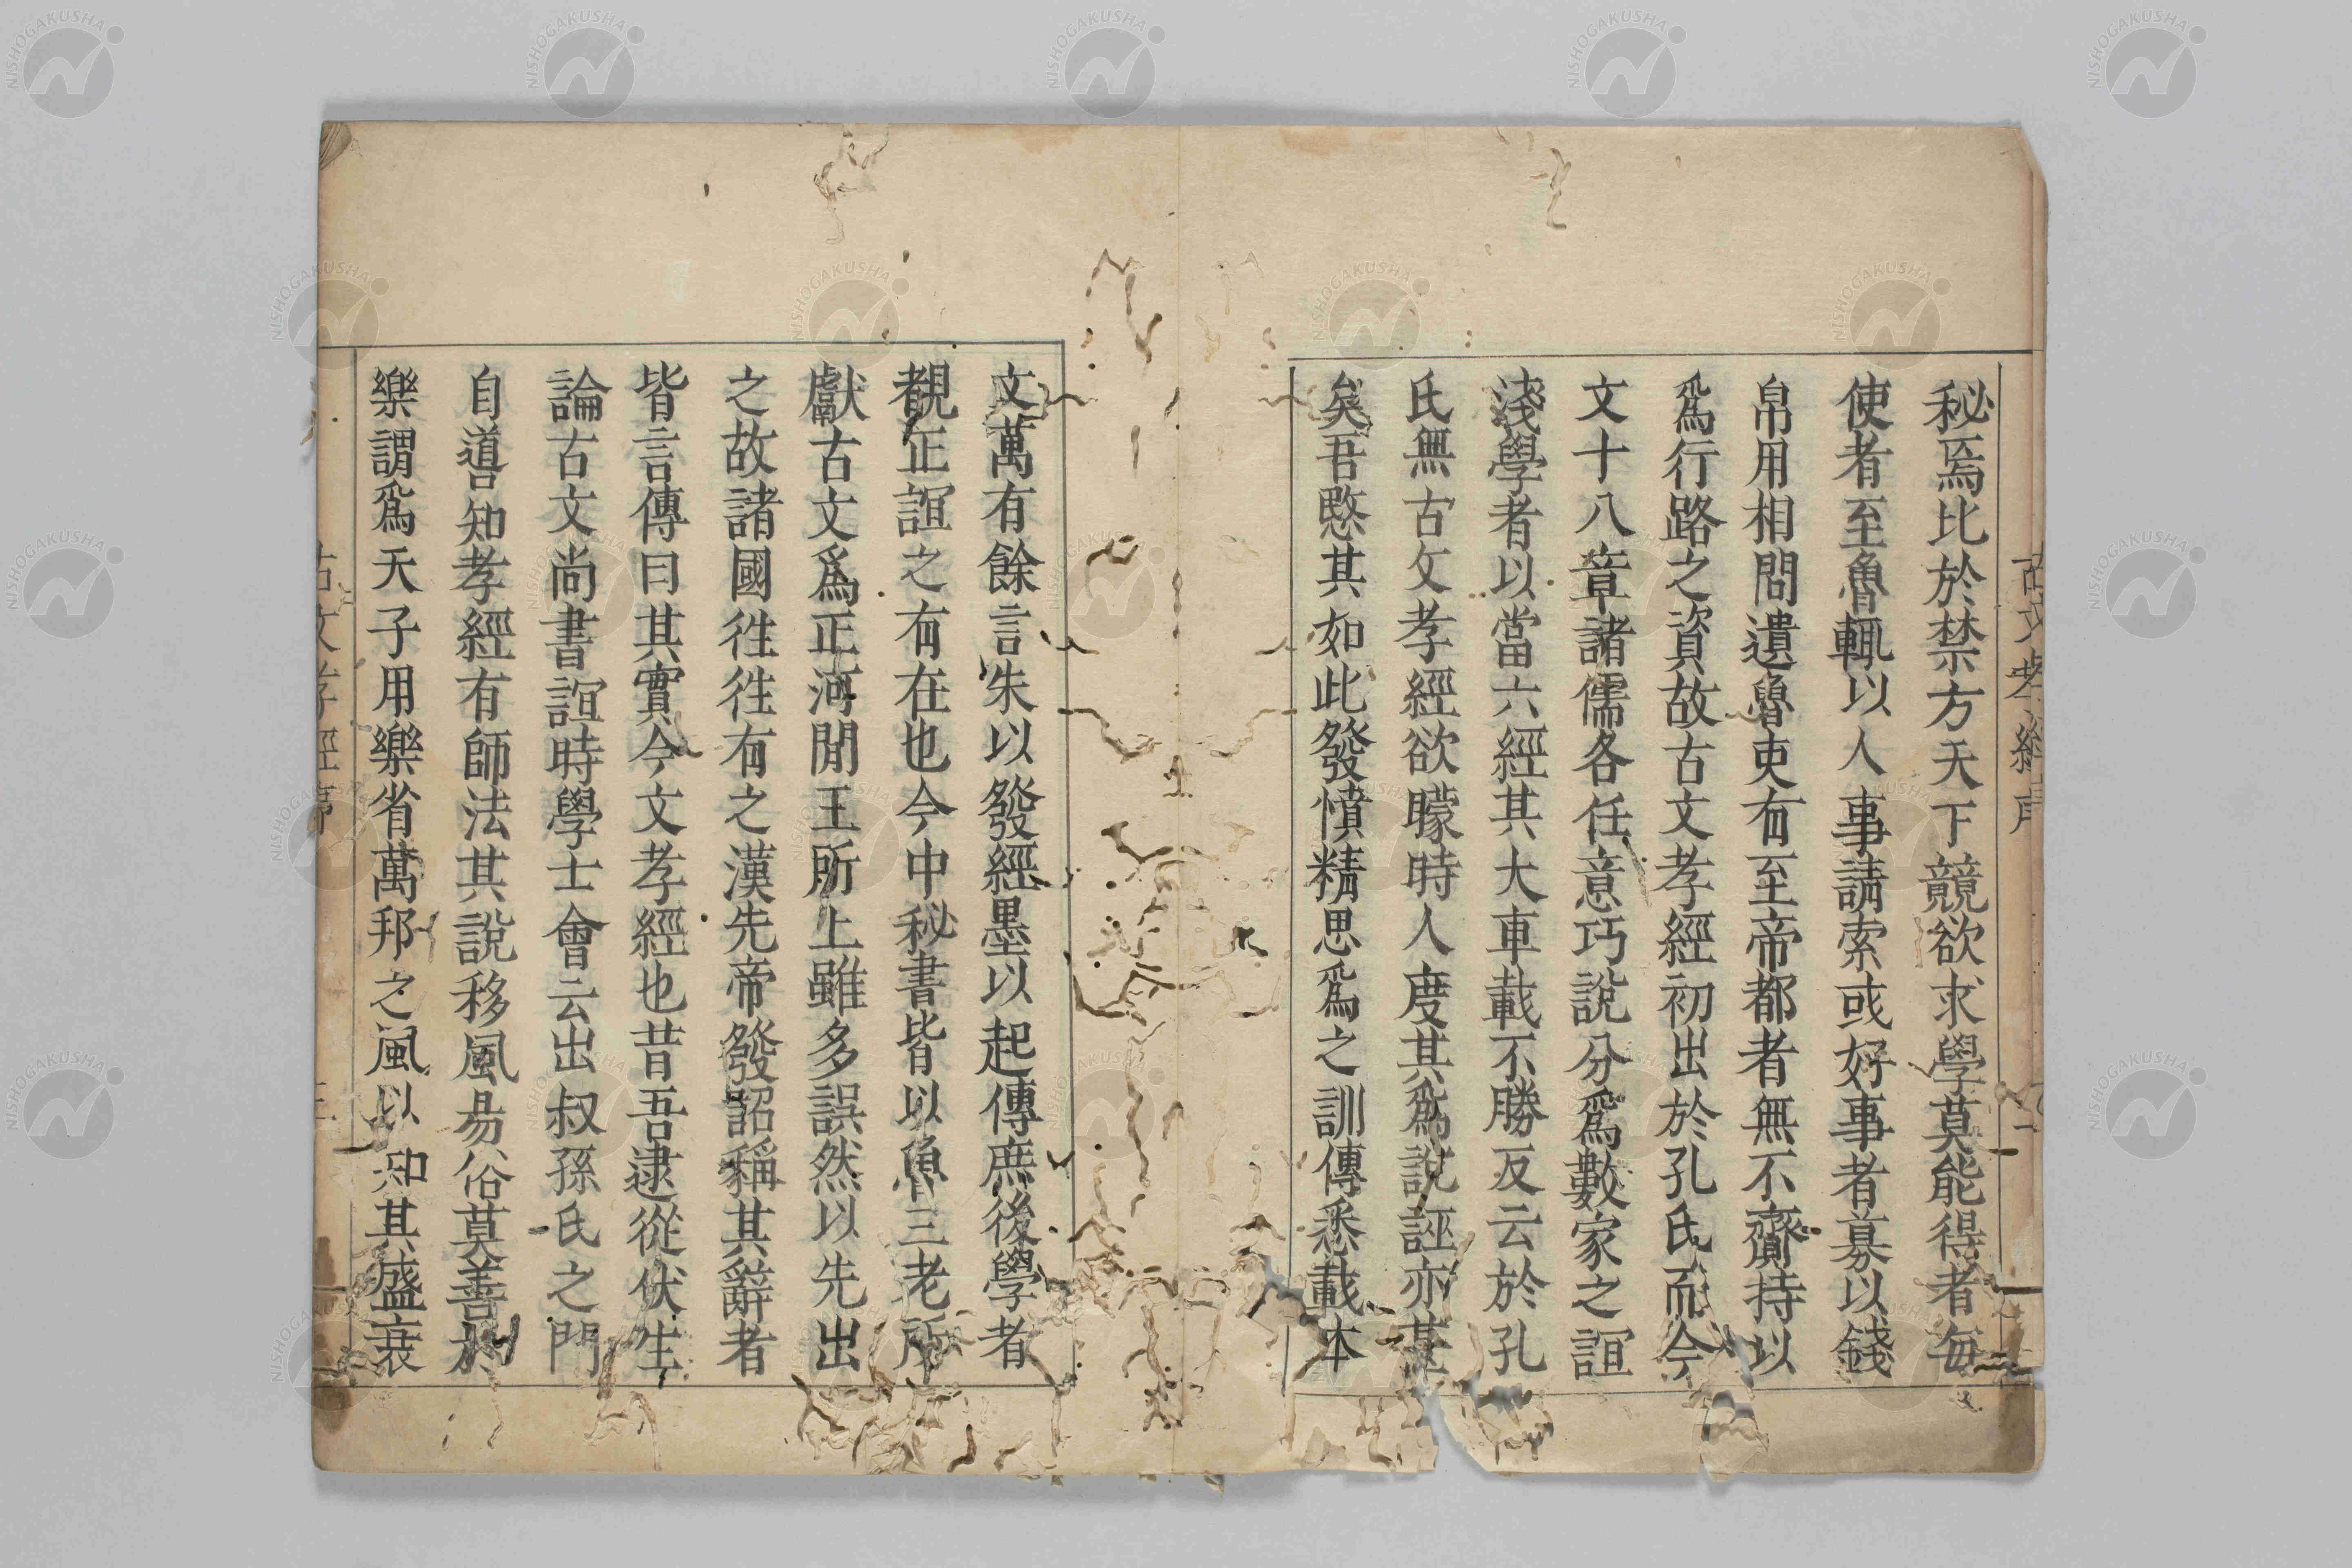 秘焉比於禁方天下競欲求學莫能得者每
使者至魯輒以人事請索或好事者募以錢
帛用相問遺魯吏有至帝都者無不齎持以
爲行路之資故古文孝經初出於孔氏而今
文十八章諸儒各任意巧說分爲數家之誼
淺學者以當六經其大車載不勝反云於孔
氏無古文孝經欲矇時人度其爲說誣亦甚
矣吾愍其如此發憤精思爲之訓傳悉載本
文萬有餘言朱以發經墨以起傳庶後學者
覩正誼之有在也今中秘書皆以魯三老所
獻古文爲正河間王所上雖多誤然以先出
之故諸國徃徃有之漢先帝發詔稱其辭者
皆言傳曰其實今文孝經也昔吾逮從伏生
論古文尚書誼時學士會云出叔孫氏之門
自道知孝經有師法其說移風易俗莫善於
樂謂爲天子用樂省萬邦之風以知其盛衰
古文孝經序
NISHOGAKUSHA